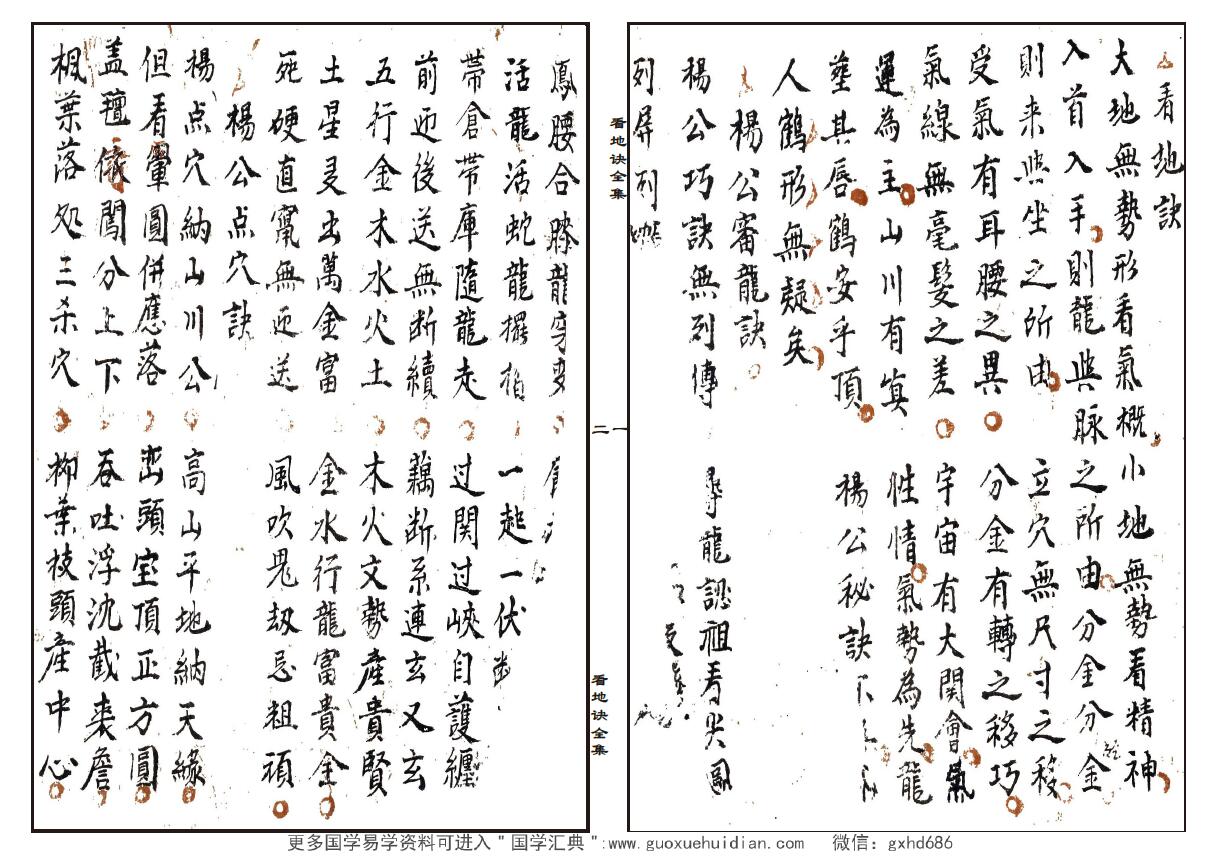 看地訣
大地無勢形看氣概小地無勢看精神
入首入手則龍與脉之所由分金分金
則来與坐之所由立穴無尺寸之移
受氣有耳腰之異分金有轉之移巧
氣線無毫髮之差宇宙有大関會氣
運為主山川有真性情氣勢為先龍
塋其唇鶴安乎頂
人鶴形無疑矣
楊公秘訣
楊公審龍訣
楊公巧訣無列傳尋龍認祖看
列屏列
看地诀全集
一
二
看地诀全集
鳳腰合膝龍
活龍活蛇龍擺一起一伏
帶倉帶庫隨龍走过関过峽自護纏
前迎後送無断續藕断系連玄又玄
五行金木水火土木火文勢產貴賢
土星出萬金富金水行龍富貴金
死硬直竄無迎送風吹鬼劫忌祖頑
楊公点穴訣
楊点穴納山川公高山平地納天緣
但看暈圓併應落巒頭宝頂正方圓
盖壇依閣分上下吞吐浮沈截裹簷
楓葉落处三杀穴柳葉枝頭產中心
更多国学易学资料可进入＂国学汇典＂:www.guoxuehuidian.com 微信：gxhd686